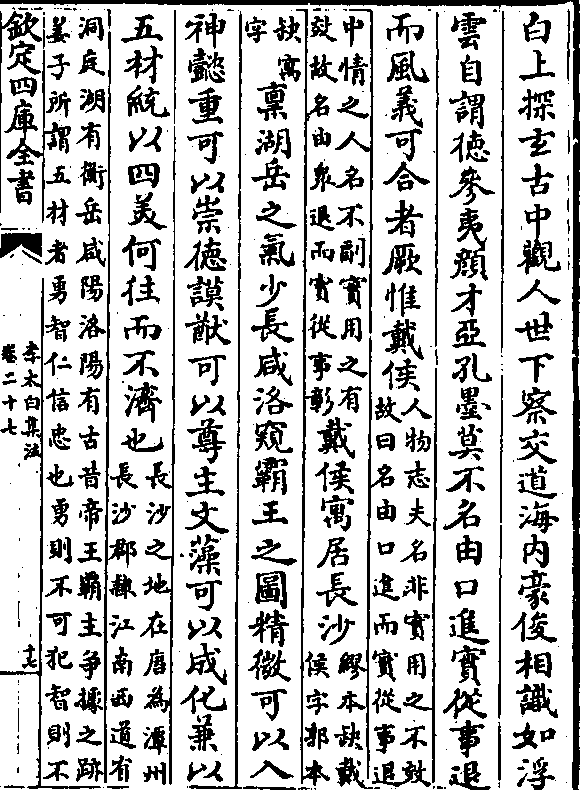 白上探玄古中觀人世下察交道海内豪俊相識如浮
雲自謂徳參夷顔才亞孔墨莫不名由口進實從事退
而風義可合者厥惟戴侯
人物志夫名非實用之不效
故曰名由口進而實從事退
中情之人名不副實用之有
效故名由衆退而實從事彰
戴侯寓居長沙
繆本缺戴
侯字郭本
缺寓
字
禀湖岳之氣少長咸洛窺霸王之圖精微可以入
神懿重可以崇徳謨猷可以尊主文藻可以成化兼以
五材統以四美何徃而不濟也
長沙之地在唐為潭州
長沙郡隸江南西道有
洞庭湖有衡岳咸陽洛陽有古昔帝王霸主爭據之跡
姜子所謂五材者勇智仁信忠也勇則不可犯智則不
欽定四庫全書
李太白集注
卷二十七
十七